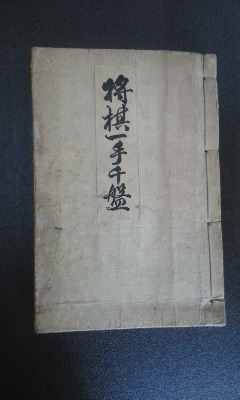 将棋一手千盤